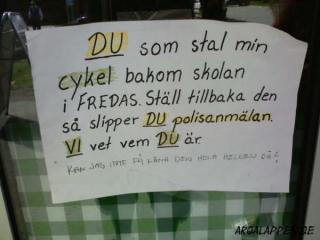 DU som stal min
cykel bakom skolan
i FREDAS. Ställ tillbaka den
så slipper DU polisanmälan.
VI vet vem DU är.
KAN JAG INTE FÅ LÅNA DEN HELA HELGEN DÅ?
ARGALAPPEN.SE